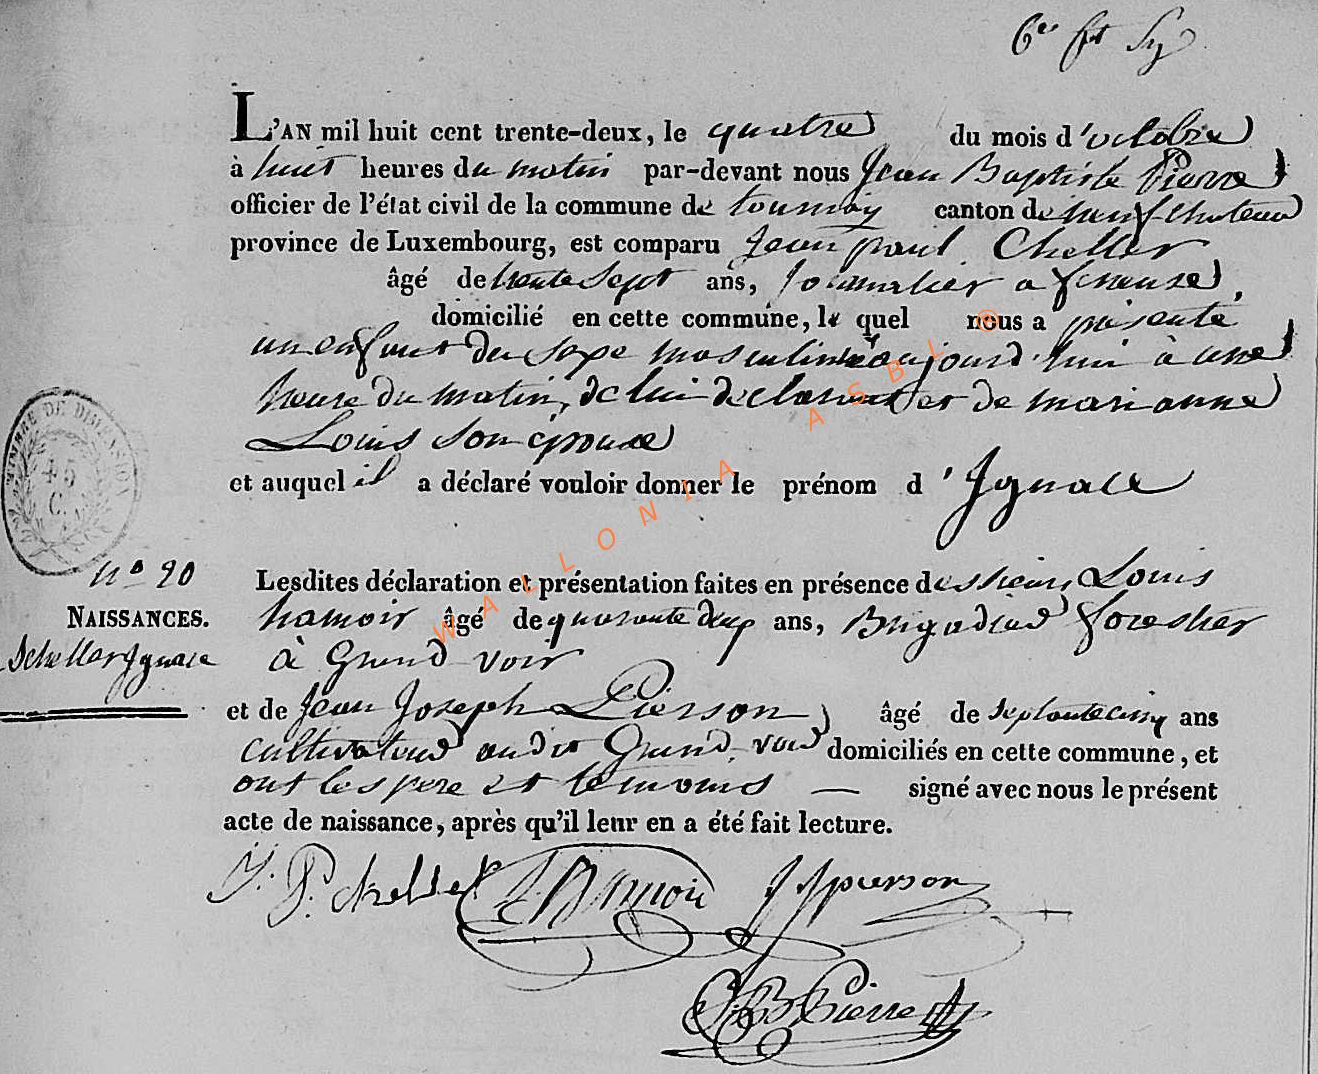 6e ft
L'AN mil huit cent trente-deux, le quatre du mois d'octobre
à huit heures du matin par-devant nous Jean Baptiste Pierre
officier de l'état civil de la commune de tournay canton de neufchateau
province de Luxembourg, est comparu Jean paul Cheller
âgé de trente Sept ans, Journalier a fineuse,
domicilié en cette commune, le quel nous a présenté
un enfant du sexe masculin né aujourd'hui à une
heure du matin, de lui declarant et de marianne
Louis Son épouse
et auquel il a déclaré vouloir donner le prénom d'Ignace
TIMBRE DE DIMENSION
45
C.
nº 20
NAISSANCES.
Scheller Ignace
Lesdites déclaration et présentation faites en présence des sieurs Louis
hamoir âgé de quarante deux ans, Brigadier forestier
à Grand-voir
et de Jean Joseph Pierson, âgé de septante cinq ans
cultivateur audit Grand-voir domiciliés en cette commune, et
ont les pere et temoins — signé avec nous le présent
acte de naissance, après qu'il leur en a été fait lecture.
J. P. Scheller L. Hamoir J J pierson
J. B. Pierre
WALLONIA ASBL ©